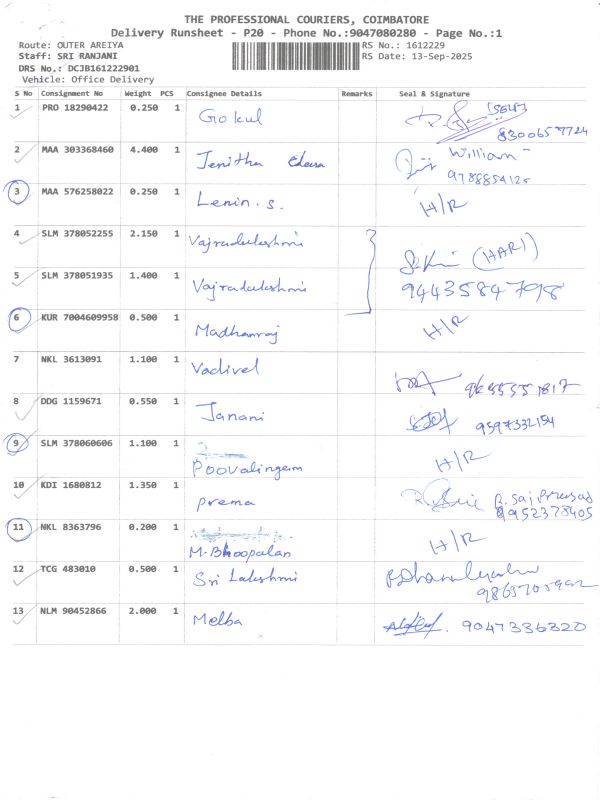 THE PROFESSIONAL COURIERS, COIMBATORE
Delivery Runsheet - P20 - Phone No.:9047080280 - Page No.:1
Route: OUTER AREIYA RS No.: 1612229
Staff: SRI RANJANI RS Date: 13-Sep-2025
DRS No.: DCJB161222901
Vehicle: Office Delivery
S No Consignment No Weight PCS Consignee Details Remarks Seal & Signature
1 PRO 18290422 0.250 1 Gokul (SELF)
8300657724
2 MAA 303368460 4.400 1 Jenitha William
9788854125
3 MAA 576258022 0.250 1 Lenin. s. H/R
4 SLM 378052255 2.150 1 Vajradulekshmi (HARI)
5 SLM 378051935 1.400 1 Vajradulekshmi 9443584798
6 KUR 7004609958 0.500 1 Madhanraj H/R
7 NKL 3613091 1.100 1 Vadivel
8 DDG 1159671 0.550 1 Janani 9597332154
9 SLM 378060606 1.100 1 Poovalingam H/R
10 KDI 1680812 1.350 1 prema R. Sai Prasad
9952378405
11 NKL 8363796 0.200 1 M. Bhoopalan H/R
12 TCG 483010 0.500 1 Sri Lakshmi
13 NLM 90452866 2.000 1 Melba 9047336320